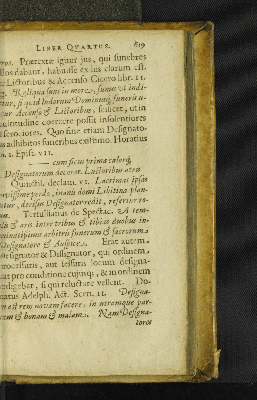 LIBER QUARTUS. 619
Prætextæ igitur jus, qui funebres
dabant, habuisse ex his clarum est.
Lictoribus & Accenso Cicero lib. II.
Reliqua sunt in more, funus ut indi-
tur Accenso & Lictoribus, scilicet, ut in
multitudine coercere possit insolentiores
serviores. Quo sine etiam Designato-
adhibitos funeribus existimo. Horatius
1. Epist. VII.
— cum ficus prima calorq́
Designatorem decorat Lictoribus atris
Quinctil. declam. VI. Lacrimas ipsas
perdo, inanis domi Libitina plan-
tur, derisus Designator redit, refertur ro-
Tertullianus de Spectac. A tem-
& aris inter tibias & tubas duobus in-
arbitris funerum & sacrorum
Designatore & Auspice. Erat autem
Designator & Dissignator, qui ordinem
processuris, aut sessuris locum designa-
pro conditione cujusq; & in ordinem
redigebat, si qui reluctare vellent. Do-
natus Adelph. Act. Scen. II. Designa-
est rem novam facere, in utramque par-
& bonam & malam. Nam Designa-
tores